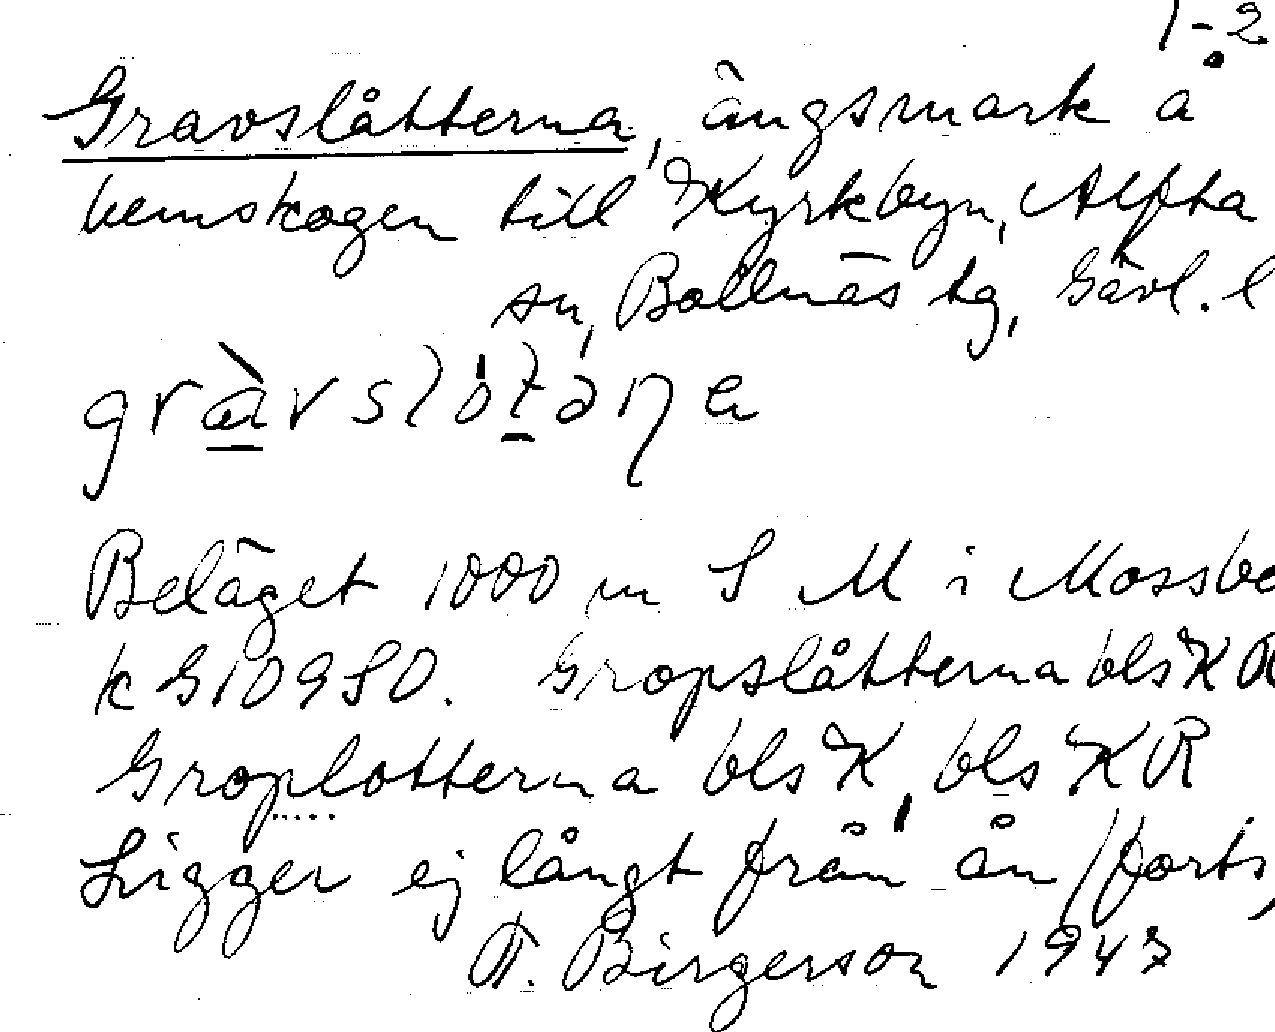 1-2
Gravslåtterna, ängsmark å
hemskogen till Kyrkbyn, Alfta
sn, Bollnäs tg, Gävl. l
Beläget 1000 m S M i Mossbe
k G10950. Gropslåtterna bls K R
Groplotterna bls K, bls K R
Ligger ej långt från ån /forts,
Birgerson 1947